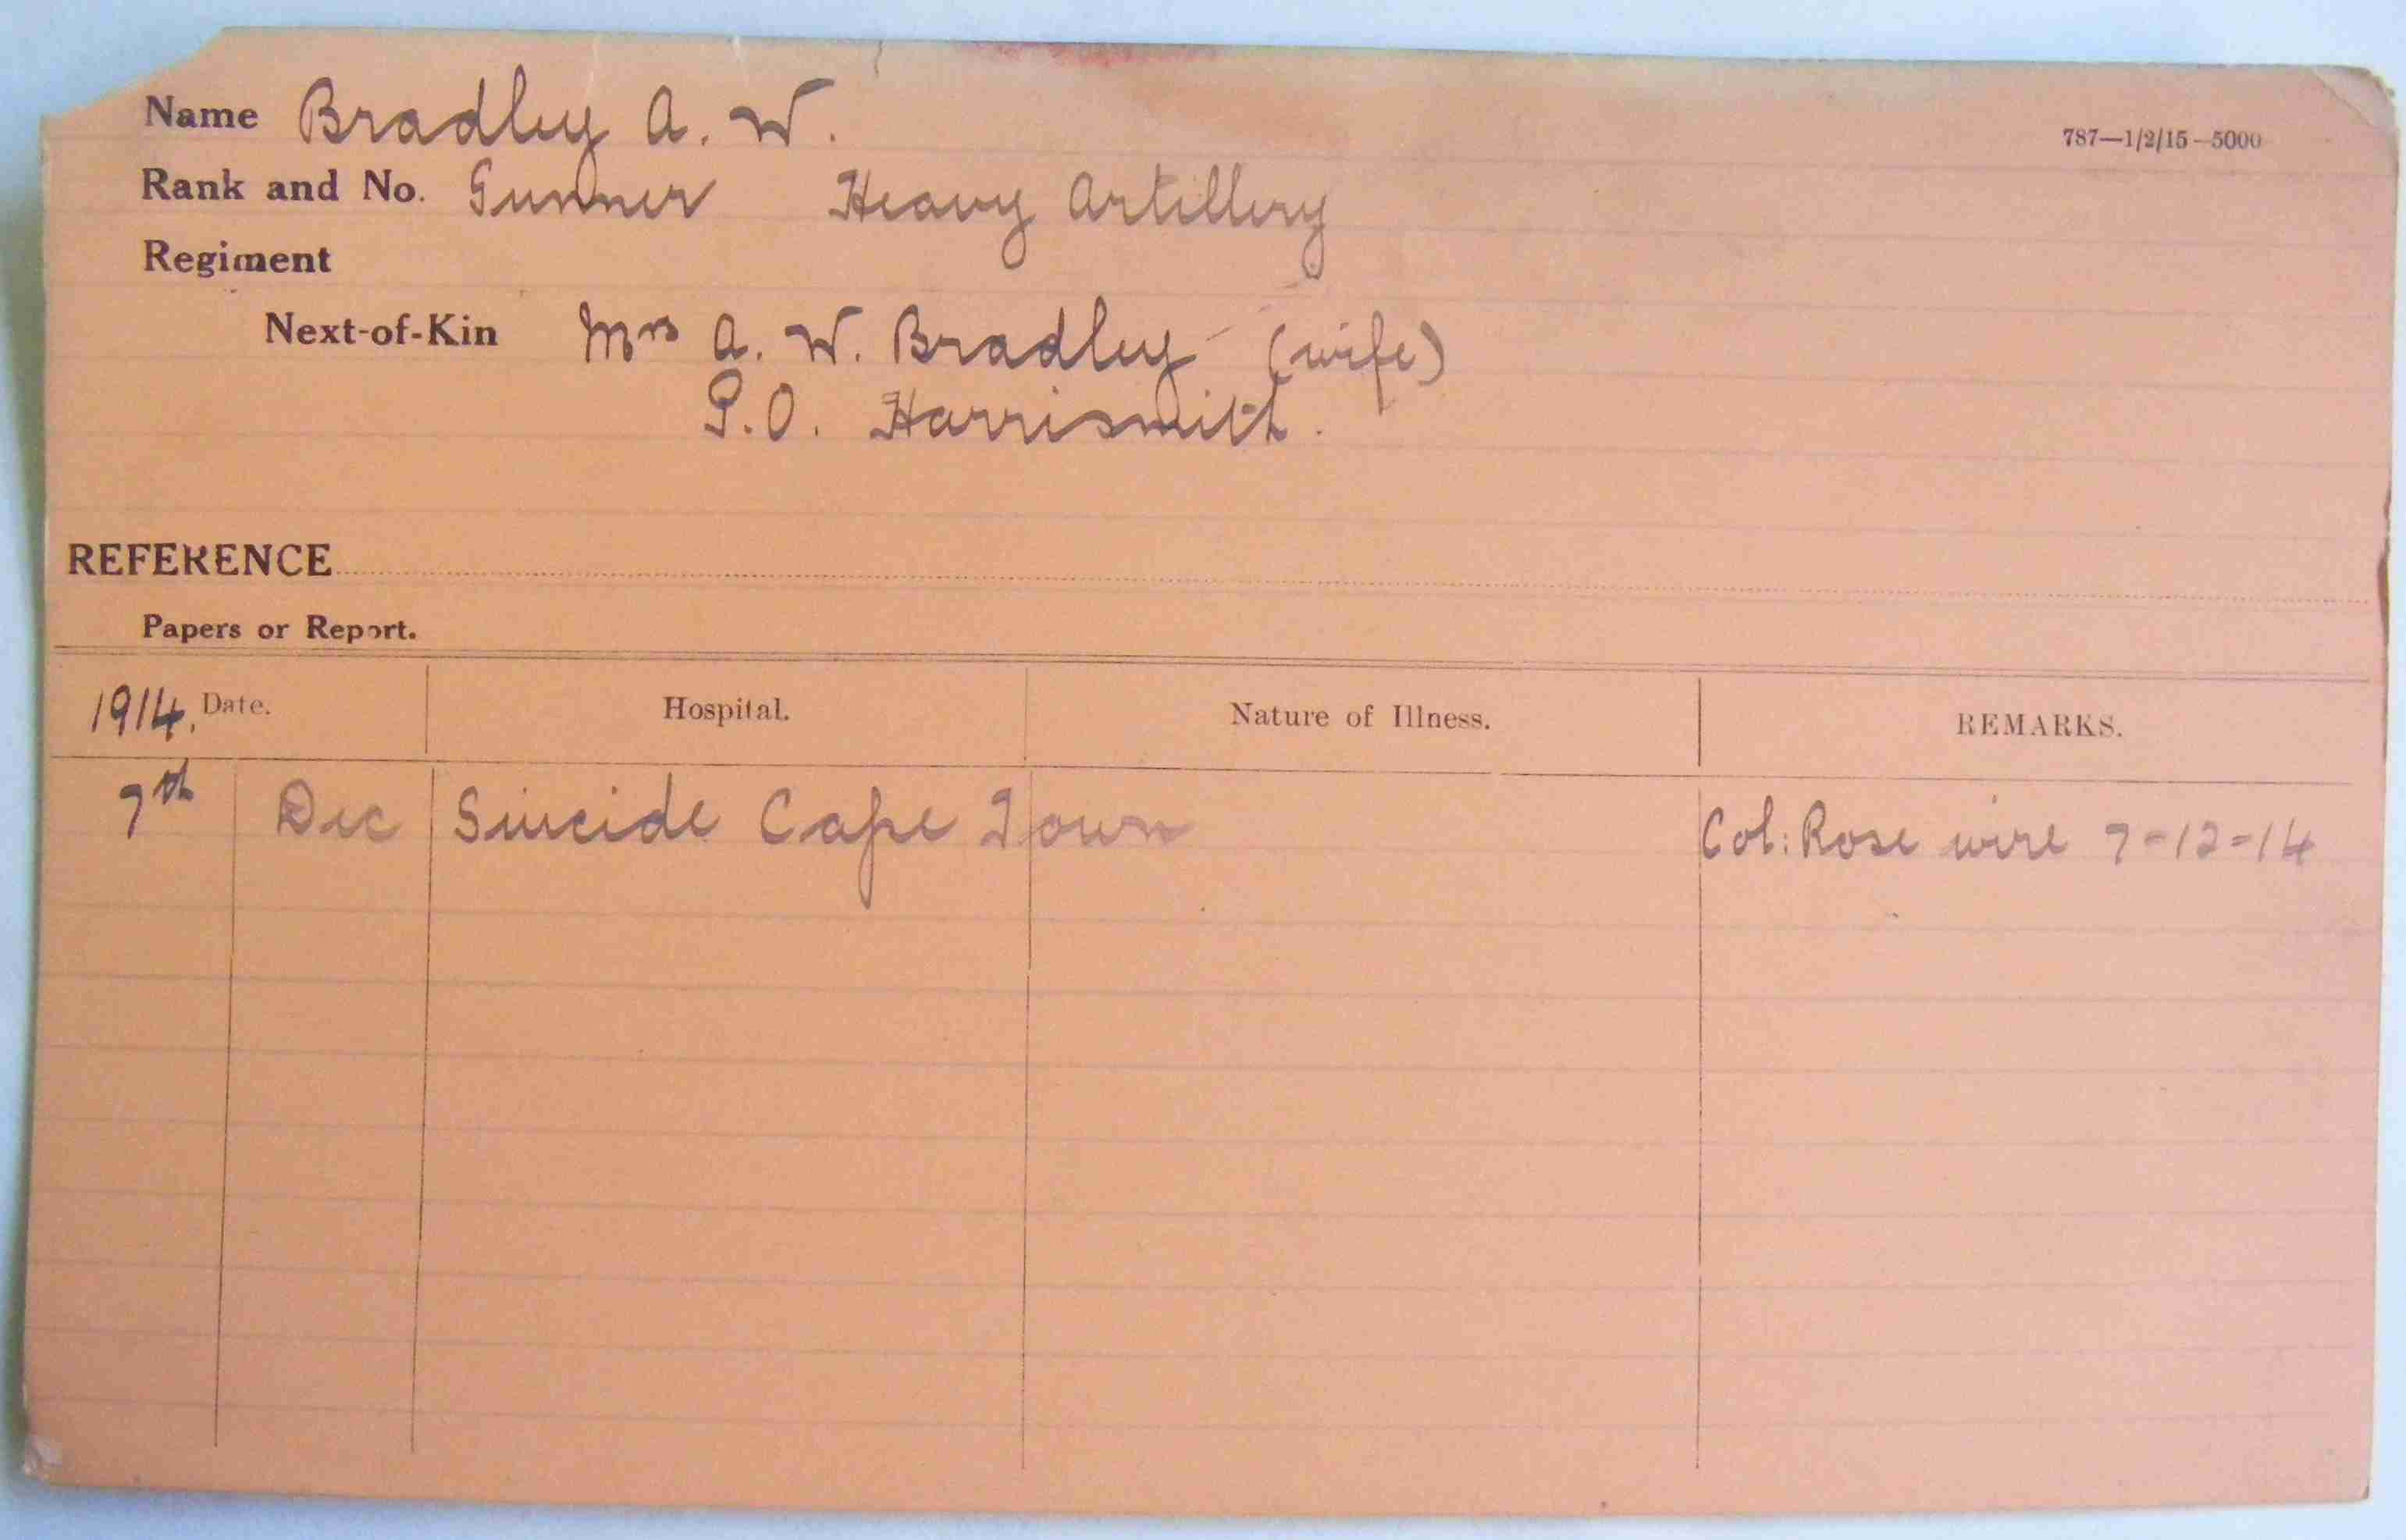 Name Bradley A. W.
787—1/2/15—5000
Rank and No. Gunner Heavy Artillery
Regiment
Next-of-Kin Mrs A. W. Bradley (wife)
P.O. Harrismith.
REFERENCE
Papers or Report.
1914. Date. Hospital. Nature of Illness. REMARKS.
7th Dec Suicide Cape Town Col: Rose wire 7-12-14